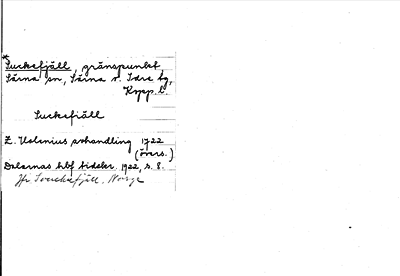 *Suckefjäll, gränspunkt
Särna sn, Särna o. Idre tg,
Kopp. l.
Suckefiäll
Z. Holenius avhandling 1722
(övers.)
Dalarnas hbf tidskr. 1922, s. 8.
Jfr Svuckufjäll, Norge